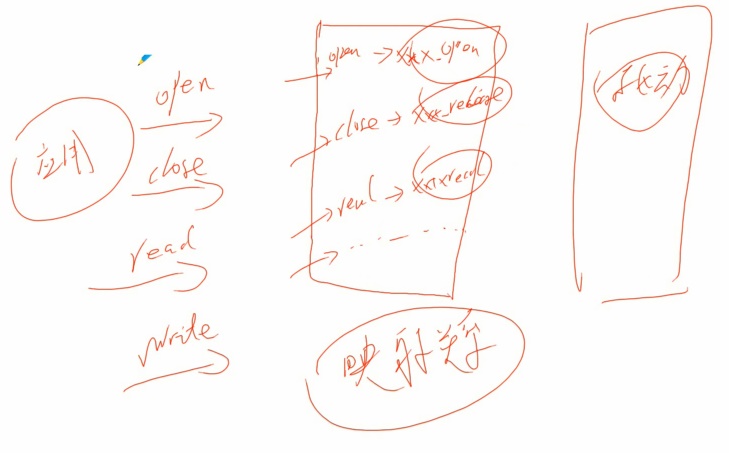 应用
open
close
read
write
open → xxx_open
close → xxx_release
read → xxx_read
... — ...
映射关系
驱动